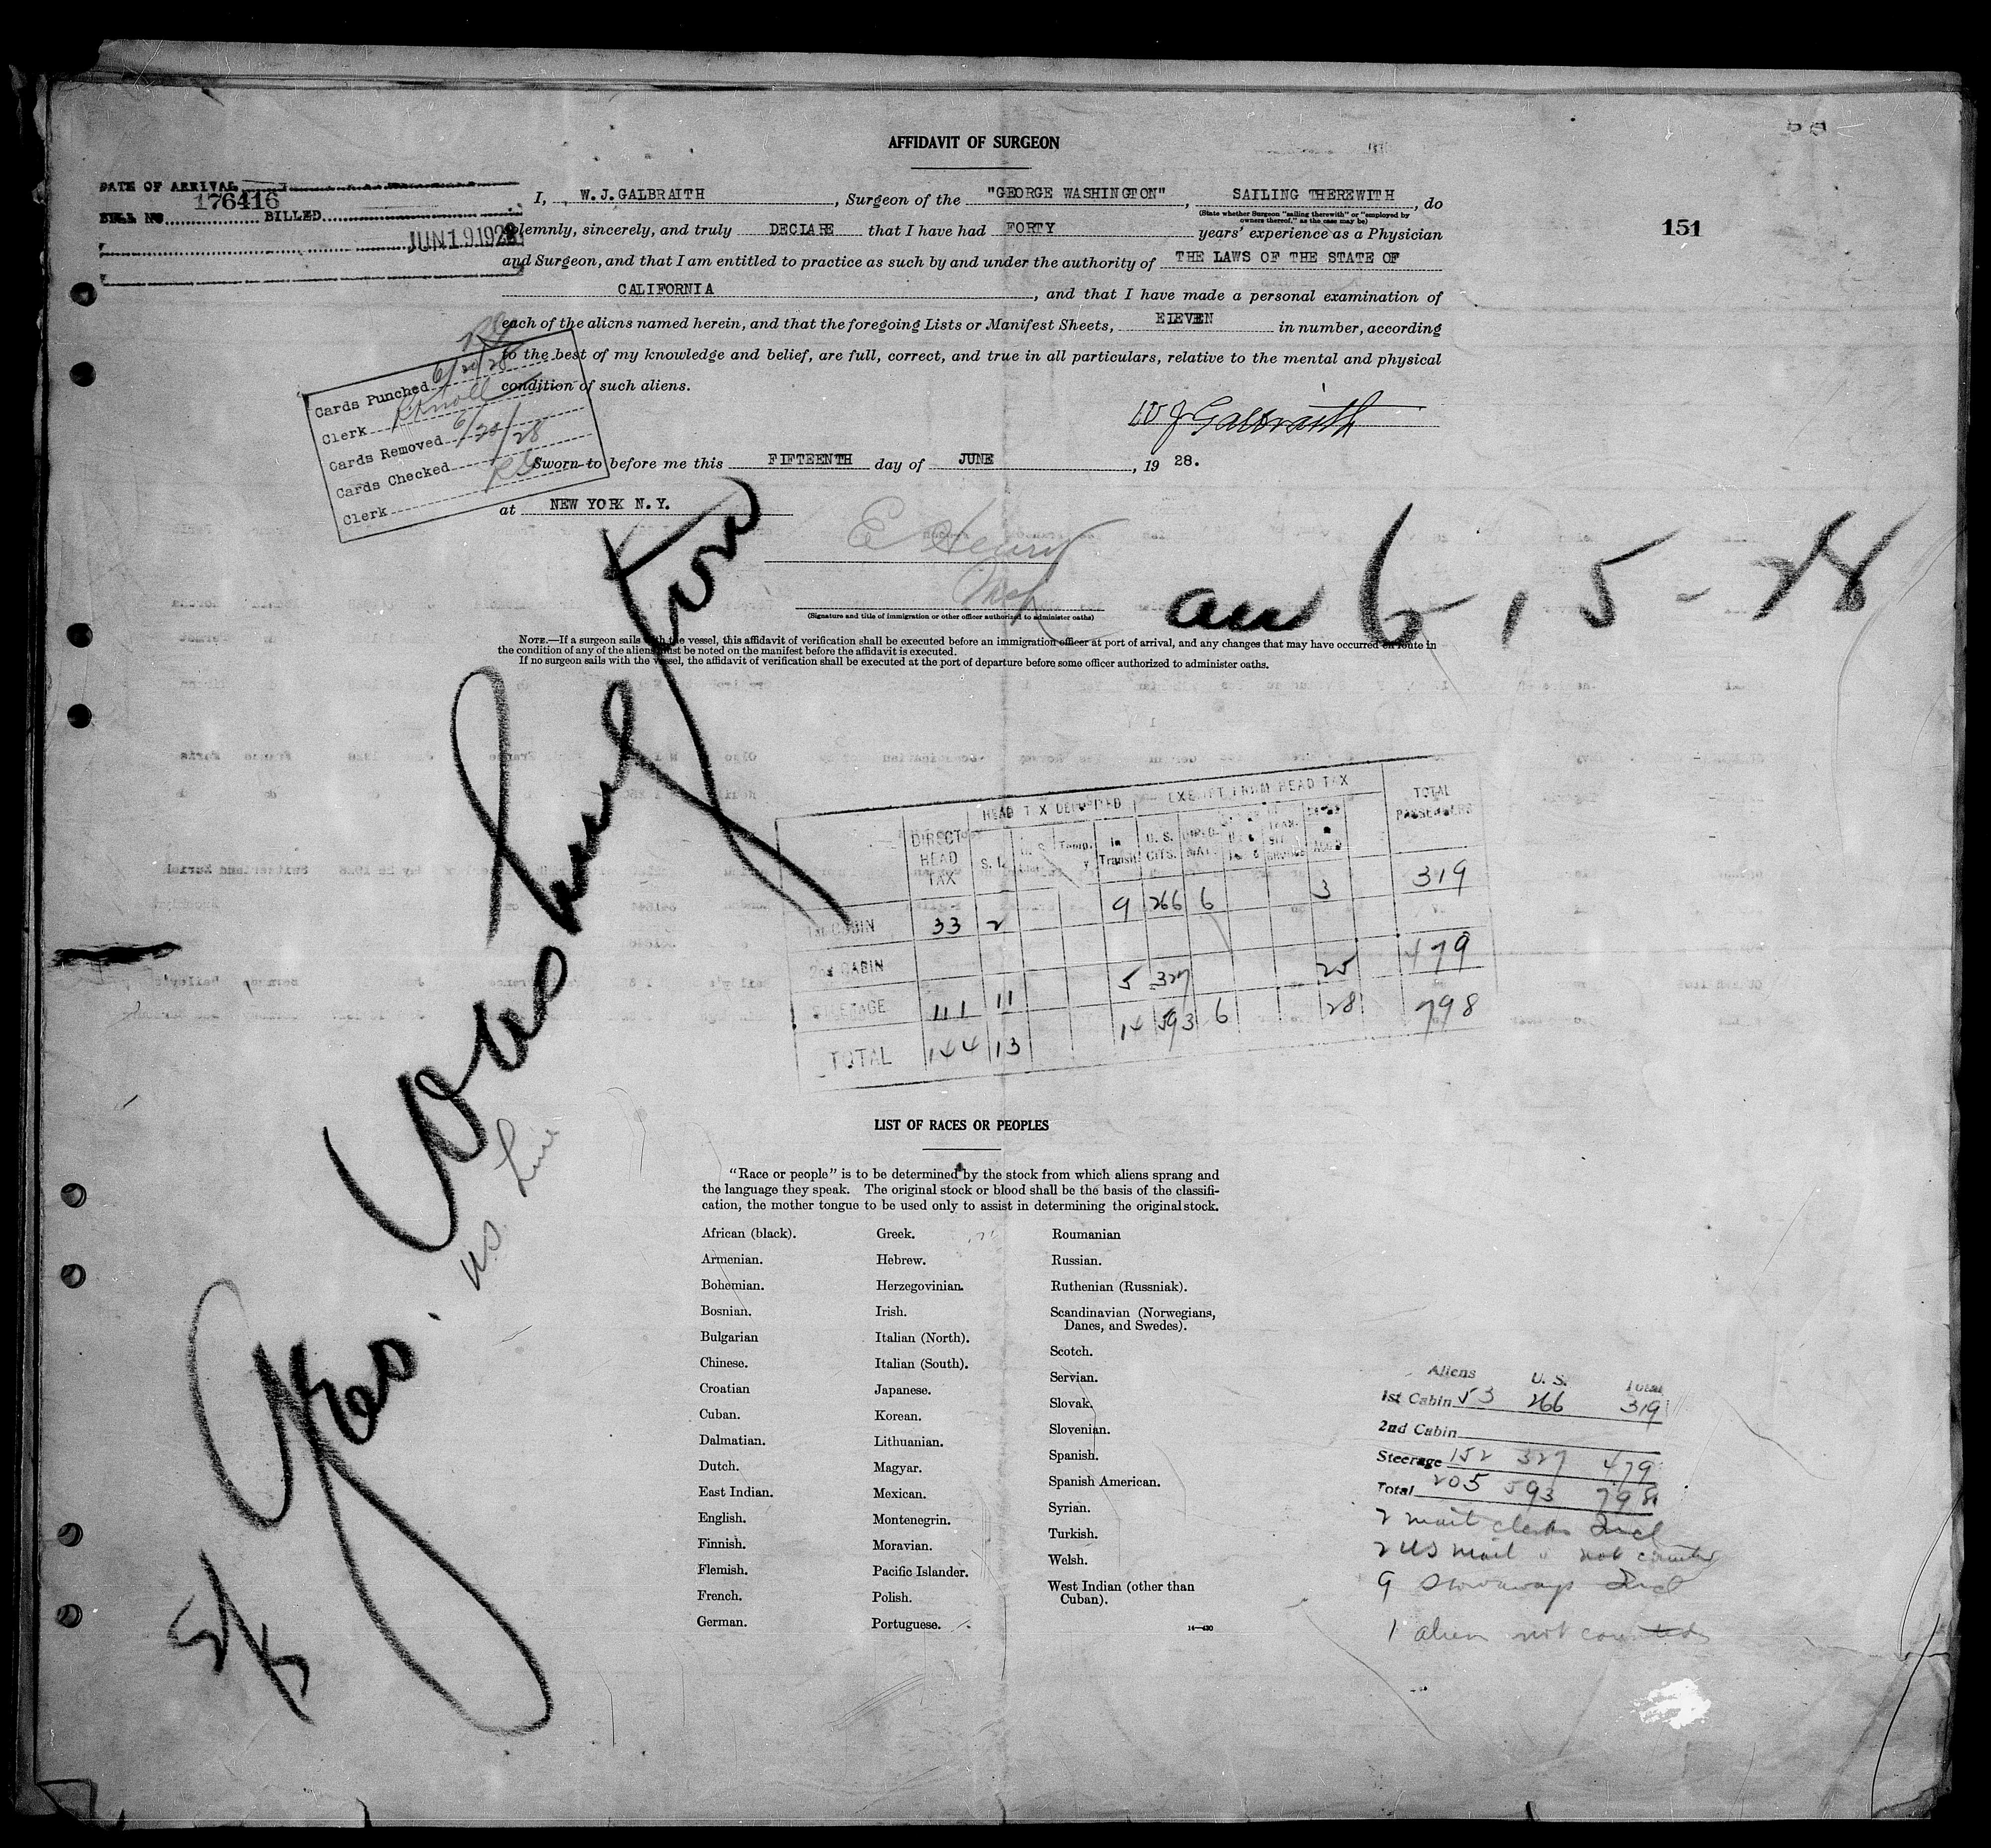 AFFIDAVIT OF SURGEON
DATE OF ARRIVAL
176416
BILL NO. BILLED
JUN 19 1928
151
I, W.J.GALBRAITH, Surgeon of the "GEORGE WASHINGTON", SAILING THEREWITH, do
(State whether Surgeon "sailing therewith" or "employed by
owners thereof," as the case may be)
solemnly, sincerely, and truly DECLARE that I have had FORTY years' experience as a Physician
and Surgeon, and that I am entitled to practice as such by and under the authority of THE LAWS OF THE STATE OF
CALIFORNIA, and that I have made a personal examination of
each of the aliens named herein, and that the foregoing Lists or Manifest Sheets, ELEVEN in number, according
to the best of my knowledge and belief, are full, correct, and true in all particulars, relative to the mental and physical
condition of such aliens.
W J Galbraith
Cards Punched 6/20/28
Clerk Knoll
Cards Removed 6/20/28
Cards Checked
Clerk
Sworn to before me this FIFTEENTH day of JUNE, 19 28.
at NEW YORK N.Y.
E Henry
Insp
(Signature and title of immigration or other officer authorized to administer oaths)
arr 6-15-28
NOTE.—If a surgeon sails with the vessel, this affidavit of verification shall be executed before an immigration officer at port of arrival, and any changes that may have occurred en route in
the condition of any of the aliens must be noted on the manifest before the affidavit is executed.
If no surgeon sails with the vessel, the affidavit of verification shall be executed at the port of departure before some officer authorized to administer oaths.
Geo. Washington
U.S. Line
HEAD TAX DEPOSITED EXEMPT FROM HEAD TAX TOTAL PASSENGERS
DIRECT HEAD TAX S. I. Temp. In Transit U. S. CITS.
1st CABIN 33 2 9 266 6 3 319
2nd CABIN
STEERAGE 111 11 5 327 25 479
TOTAL 144 13 14 593 6 28 798
LIST OF RACES OR PEOPLES
"Race or people" is to be determined by the stock from which aliens sprang and
the language they speak. The original stock or blood shall be the basis of the classifi-
cation, the mother tongue to be used only to assist in determining the original stock.
African (black).
Armenian.
Bohemian.
Bosnian.
Bulgarian
Chinese.
Croatian
Cuban.
Dalmatian.
Dutch.
East Indian.
English.
Finnish.
Flemish.
French.
German.
Greek.
Hebrew.
Herzegovinian.
Irish.
Italian (North).
Italian (South).
Japanese.
Korean.
Lithuanian.
Magyar.
Mexican.
Montenegrin.
Moravian.
Pacific Islander.
Polish.
Portuguese.
Roumanian
Russian.
Ruthenian (Russniak).
Scandinavian (Norwegians,
Danes, and Swedes).
Scotch.
Servian.
Slovak.
Slovenian.
Spanish.
Spanish American.
Syrian.
Turkish.
Welsh.
West Indian (other than
Cuban).
14—430
Aliens U. S. Total
1st Cabin 53 266 319
2nd Cabin
Steerage 152 327 479
Total 205 593 798
2 mail clerks Incl
2 US mail " not counted
9 stowaways Incl
1 alien not counted